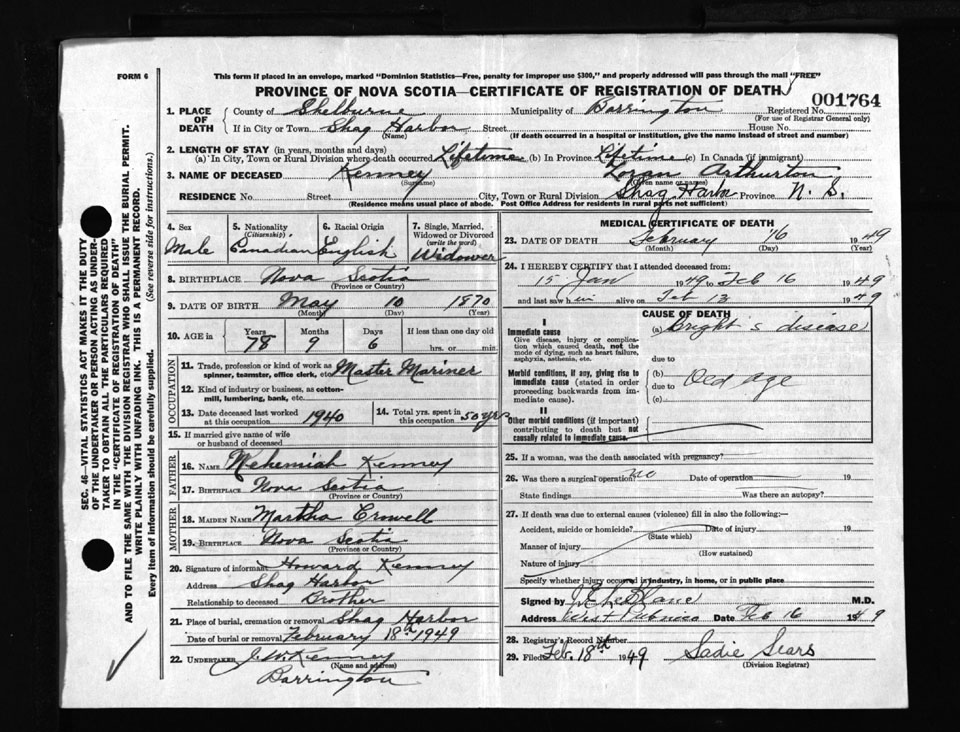 FORM 6
This form if placed in an envelope, marked "Dominion Statistics—Free, penalty for improper use $300," and properly addressed will pass through the mail "FREE"
PROVINCE OF NOVA SCOTIA—CERTIFICATE OF REGISTRATION OF DEATH
001764
1. PLACE OF DEATH
County of Shelburne Municipality of Barrington Registered No.
(For use of Registrar General only)
If in City or Town Shag Harbor Street House No.
(Name) (If death occurred in a hospital or institution, give the name instead of street and number)
2. LENGTH OF STAY (in years, months and days)
(a) In City, Town or Rural Division where death occurred Lifetime (b) In Province Lifetime (c) In Canada (if immigrant)
3. NAME OF DECEASED Kenney Loran Arthurton
(Surname) (Given name or names)
RESIDENCE No. Street City, Town or Rural Division Shag Harbor Province N. S.
(Residence means usual place of abode. Post Office Address for residents in rural parts not sufficient)
4. Sex
Male
5. Nationality
(Citizenship)
Canadian
6. Racial Origin
English
7. Single, Married,
Widowed or Divorced
(write the word)
Widower
8. BIRTHPLACE Nova Scotia
(Province or Country)
9. DATE OF BIRTH May 10 1870
(Month) (Day) (Year)
10. AGE in Years Months Days If less than one day old
78 9 6 hrs. or min.
OCCUPATION
11. Trade, profession or kind of work as
spinner, teamster, office clerk, etc. Master Mariner
12. Kind of industry or business, as cotton-
mill, lumbering, bank, etc.
13. Date deceased last worked
at this occupation 1940
14. Total yrs. spent in
this occupation 50 yrs
15. If married give name of wife
or husband of deceased
FATHER
16. NAME Nehemiah Kenney
17. BIRTHPLACE Nova Scotia
(Province or Country)
MOTHER
18. MAIDEN NAME Martha Crowell
19. BIRTHPLACE Nova Scotia
(Province or Country)
20. Signature of informant Howard Kenney
Address Shag Harbor
Relationship to deceased Brother
21. Place of burial, cremation or removal Shag Harbor
Date of burial or removal February 18th 1949
22. UNDERTAKER J. W. Kenney
(Name and address)
Barrington
MEDICAL CERTIFICATE OF DEATH
23. DATE OF DEATH February 16 1949
(Month) (Day) (Year)
24. I HEREBY CERTIFY that I attended deceased from:
15 Jan 1949 to Feb 16 1949
and last saw him alive on Feb 13 1949
CAUSE OF DEATH
I
Immediate cause
Give disease, injury or complication which caused death, not the mode of dying, such as heart failure, asphyxia, asthenia, etc.
(a) Bright's disease
due to
Morbid conditions, if any, giving rise to immediate cause (stated in order proceeding backwards from immediate cause).
(b) Old age
due to
(c)
II
Other morbid conditions (if important) contributing to death but not causally related to immediate cause.
25. If a woman, was the death associated with pregnancy?
26. Was there a surgical operation? no Date of operation 19
State findings Was there an autopsy?
27. If death was due to external causes (violence) fill in also the following:—
Accident, suicide or homicide? Date of injury 19
(State which)
Manner of injury
(How sustained)
Nature of injury
Specify whether injury occurred in industry, in home, or in public place
Signed by M.D.
Address West Pubnico Date Feb 16 1949
28. Registrar's Record Number
29. Filed Feb. 18th 1949 Sadie Sears
(Division Registrar)
SEC. 46—VITAL STATISTICS ACT MAKES IT THE DUTY
OF THE UNDERTAKER OR PERSON ACTING AS UNDER-
TAKER TO OBTAIN ALL THE PARTICULARS REQUIRED
IN THE "CERTIFICATE OF REGISTRATION OF DEATH"
AND TO FILE THE SAME WITH THE DIVISION REGISTRAR WHO SHALL ISSUE THE BURIAL PERMIT.
WRITE PLAINLY WITH UNFADING INK. THIS IS A PERMANENT RECORD.
Every item of information should be carefully supplied. (See reverse side for instructions.)